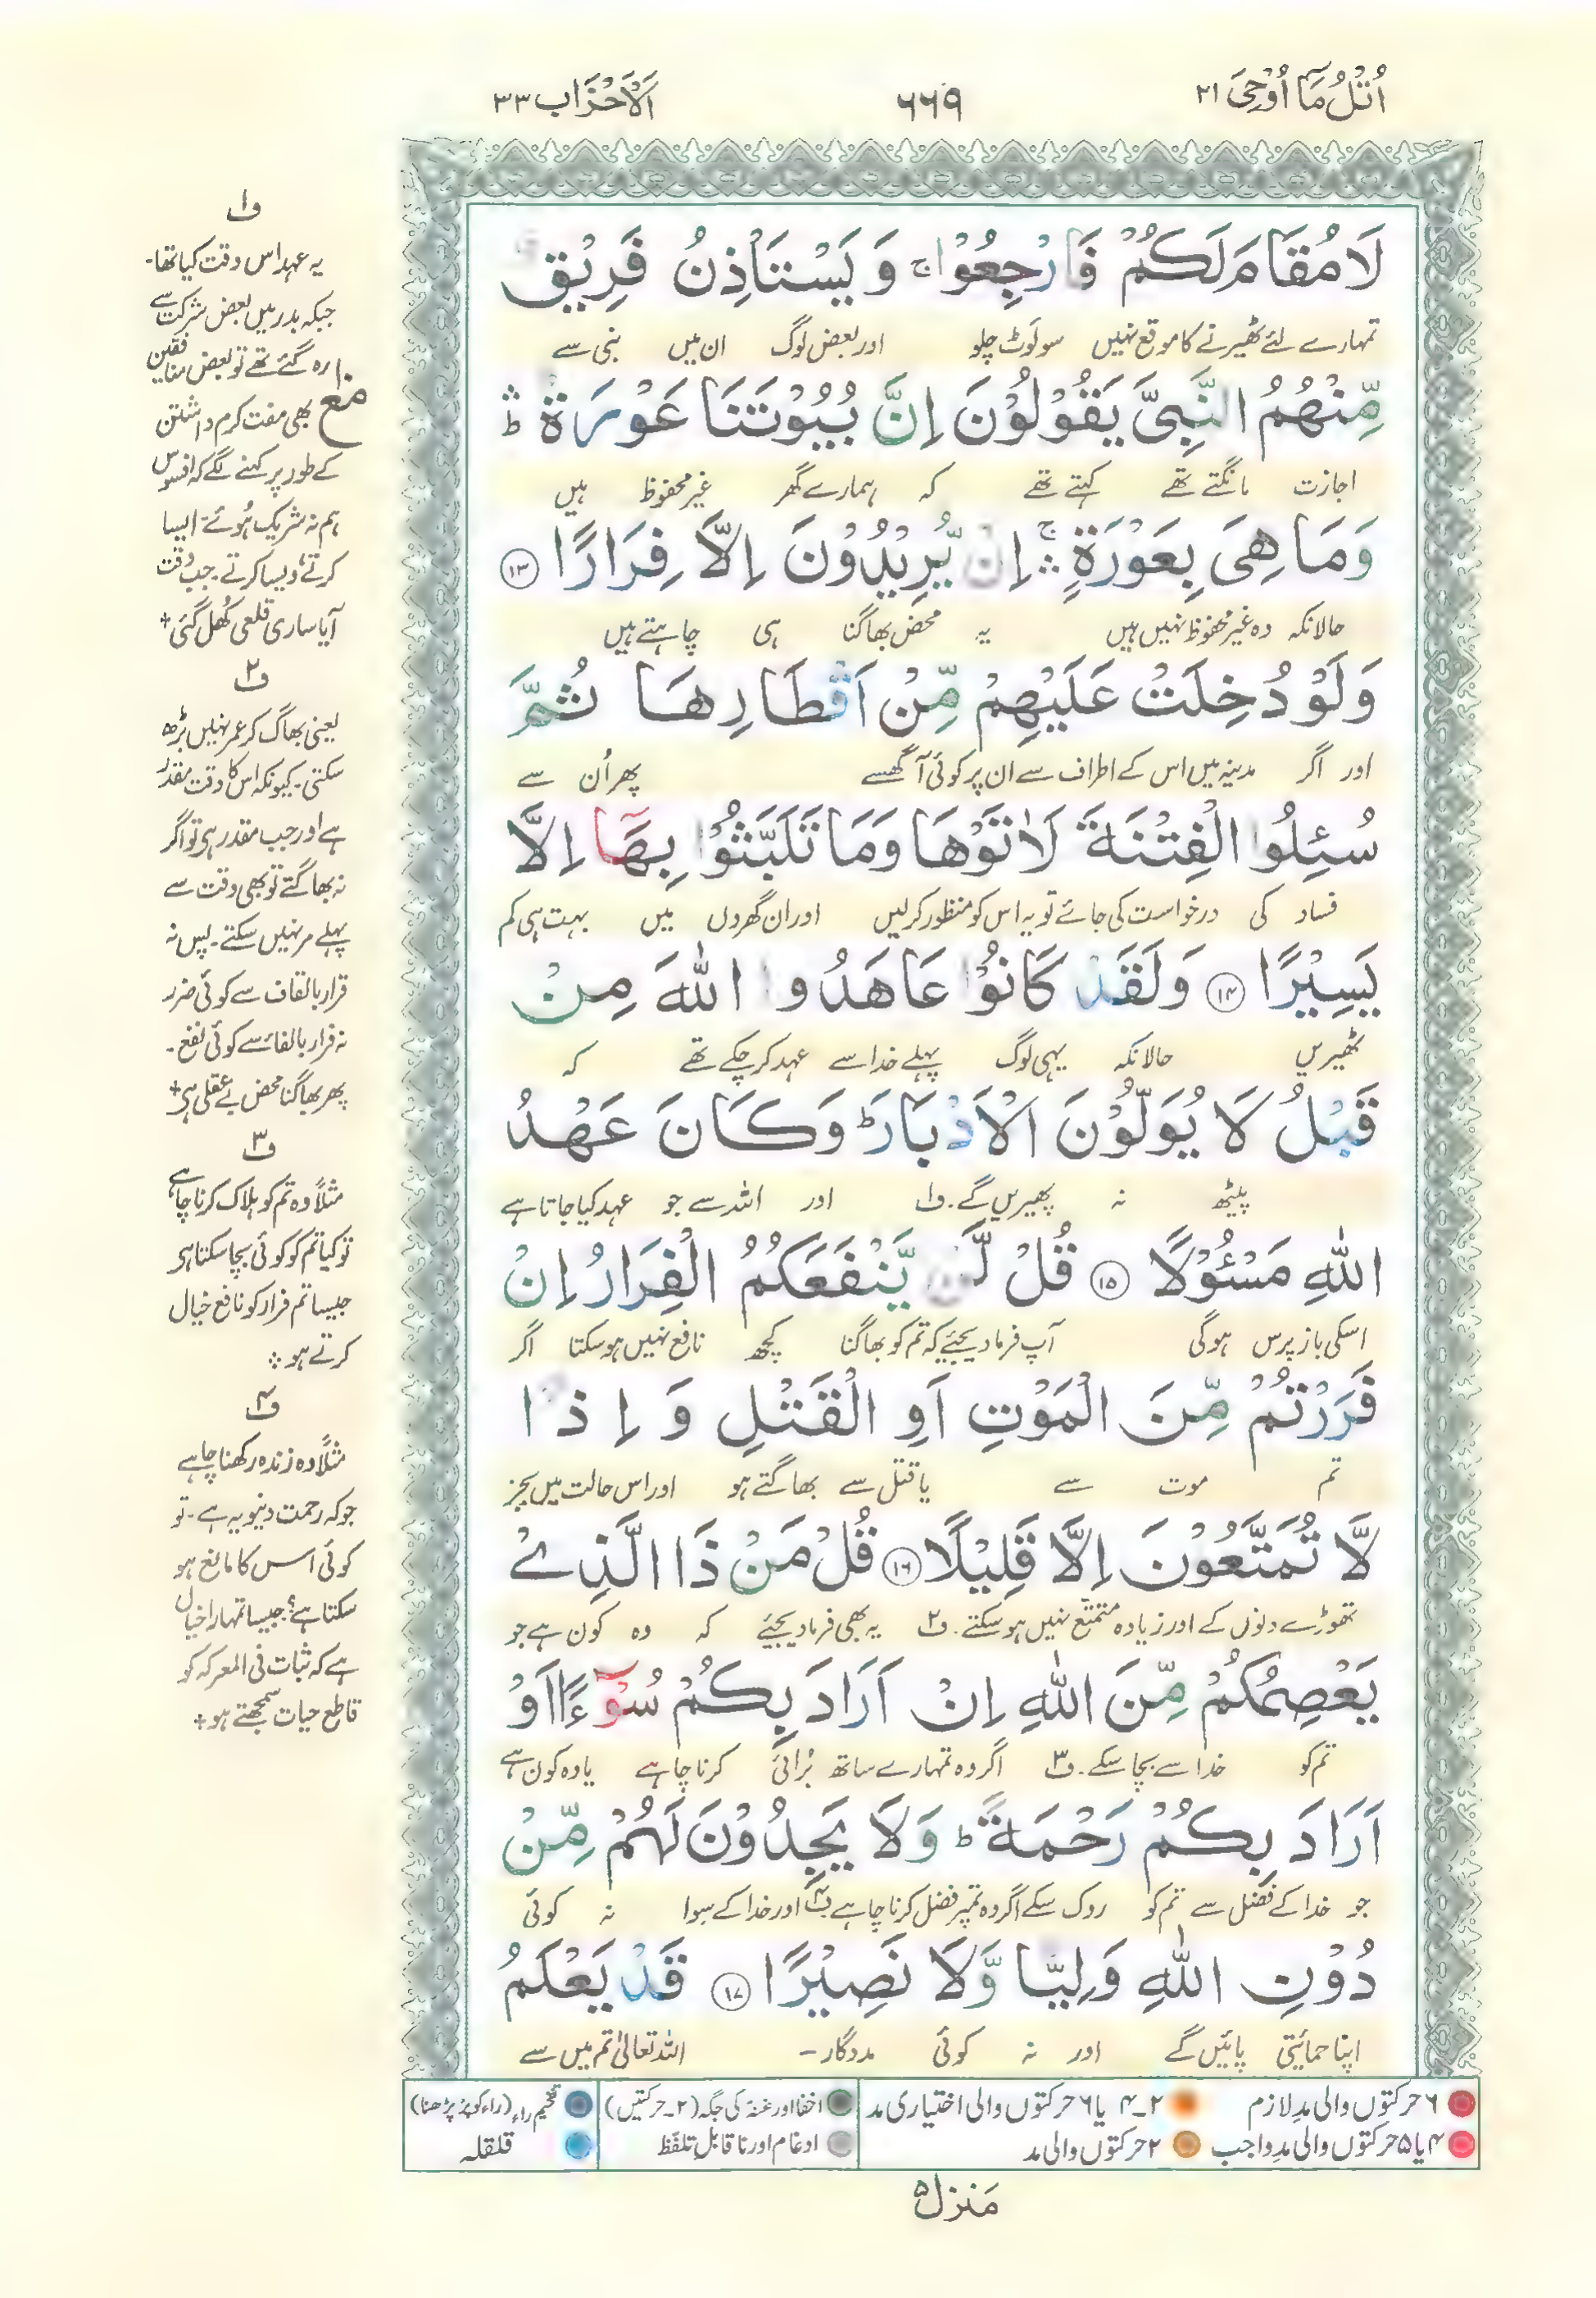 اُتْلُ مَآ اُوْحِیَ ۲۱
۶۶۹
اَلْاَحْزَاب ۳۳
لَا مُقَامَ لَكُمْ فَارْجِعُوْا ۚ وَ یَسْتَاْذِنُ فَرِیْقٌ
تمہارے لئے ٹھیرنے کا موقع نہیں سو لوٹ چلو اور بعض لوگ ان میں نبی سے
مِّنْهُمُ النَّبِیَّ یَقُوْلُوْنَ اِنَّ بُیُوْتَنَا عَوْرَةٌ ؕ
اجازت مانگتے تھے کہتے تھے کہ ہمارے گھر غیر محفوظ ہیں
وَمَا هِیَ بِعَوْرَةٍ ۛۚ اِنْ یُّرِیْدُوْنَ اِلَّا فِرَارًا ۱۳
حالانکہ وہ غیر محفوظ نہیں ہیں یہ محض بھاگنا ہی چاہتے ہیں
وَلَوْ دُخِلَتْ عَلَیْهِمْ مِّنْ اَقْطَارِهَا ثُمَّ
اور اگر مدینہ میں اس کے اطراف سے ان پر کوئی آ گھسے پھر اُن سے
سُئِلُوا الْفِتْنَةَ لَاٰتَوْهَا وَمَا تَلَبَّثُوْا بِهَاۤ اِلَّا
فساد کی درخواست کی جائے تو یہ اس کو منظور کرلیں اور ان گھروں میں بہت ہی کم
یَسِیْرًا ۱۴ وَلَقَدْ كَانُوْا عَاهَدُوا اللّٰهَ مِنْ
ٹھیریں حالانکہ یہی لوگ پہلے خدا سے عہد کرچکے تھے کہ
قَبْلُ لَا یُوَلُّوْنَ الْاَدْبَارَ ؕ وَكَانَ عَهْدُ
پیٹھ نہ پھیریں گے۔ ف۱ اور اللہ سے جو عہد کیا جاتا ہے
اللّٰهِ مَسْئُوْلًا ۱۵ قُلْ لَّنْ یَّنْفَعَكُمُ الْفِرَارُ اِنْ
اسکی باز پرس ہوگی آپ فرما دیجئے کہ تم کو بھاگنا کچھ نافع نہیں ہوسکتا اگر
فَرَرْتُمْ مِّنَ الْمَوْتِ اَوِ الْقَتْلِ وَ اِذًا
تم موت سے یا قتل سے بھاگتے ہو اور اس حالت میں بجز
لَّا تُمَتَّعُوْنَ اِلَّا قَلِیْلًا ۱۶ قُلْ مَنْ ذَا الَّذِیْ
تھوڑے دنوں کے اور زیادہ متمتع نہیں ہوسکتے۔ ف۲ یہ بھی فرما دیجئے کہ وہ کون ہے جو
یَعْصِمُكُمْ مِّنَ اللّٰهِ اِنْ اَرَادَ بِكُمْ سُوْٓءًا اَوْ
تم کو خدا سے بچا سکے۔ ف۳ اگر وہ تمہارے ساتھ بُرائی کرنا چاہے یا وہ کون ہے
اَرَادَ بِكُمْ رَحْمَةً ؕ وَلَا یَجِدُوْنَ لَهُمْ مِّنْ
جو خدا کے فضل سے تم کو روک سکے اگر وہ تم پر فضل کرنا چاہے ف۴ اور خدا کے سوا نہ کوئی
دُوْنِ اللّٰهِ وَلِیًّا وَّلَا نَصِیْرًا ۱۷ قَدْ یَعْلَمُ
اپنا حمایتی پائیں گے اور نہ کوئی مددگار۔ اللہ تعالیٰ تم میں سے
ف۱
یہ عہد اس وقت کیا تھا۔
جبکہ بدر میں بعض شرکت سے
رہ گئے تھے تو بعض منافقین
مع
بھی مفت کرم داشتن
کے طور پر کہنے لگے کہ افسوس
ہم نہ شریک ہُوئے۔ ایسا
کرتے، ویسا کرتے۔ جب وقت
آیا ساری قلعی کُھل گئی+
ف۲
یعنی بھاگ کر عمر نہیں بڑھ
سکتی۔ کیونکہ اس کا وقت مقدر
ہے اور جب مقدر ہی تو اگر
نہ بھاگتے تو بھی وقت سے
پہلے مر نہیں سکتے۔ پس نہ
قرار بالقاف سے کوئی ضرر
نہ فرار بالفاء سے کوئی نفع۔
پھر بھاگنا محض بے عقلی ہی+
ف۳
مثلاً وہ تم کو ہلاک کرنا چاہے
تو کیا تم کو کوئی بچا سکتا ہی
جیسا تم فرار کو نافع خیال
کرتے ہو ؞
ف۴
مثلاً وہ زندہ رکھنا چاہے
جو کہ رحمت دنیویہ ہے۔ تو
کوئی اس کا مانع ہو
سکتا ہے؟ جیسا تمہارا خیال
ہے کہ ثبات فی المعرکہ کو
قاطع حیات سمجھتے ہو+
۶ حرکتوں والی مدِ لازم
۲۔۴ یا ۶ حرکتوں والی اختیاری مد
اخفا اور غنہ کی جگہ (۲۔حرکتیں)
تفخیم راء (راء کو پُر پڑھنا)
۴ یا ۵ حرکتوں والی مدِ واجب
۲ حرکتوں والی مد
ادغام اور ناقابلِ تلفّظ
قلقلہ
مَنزل۵